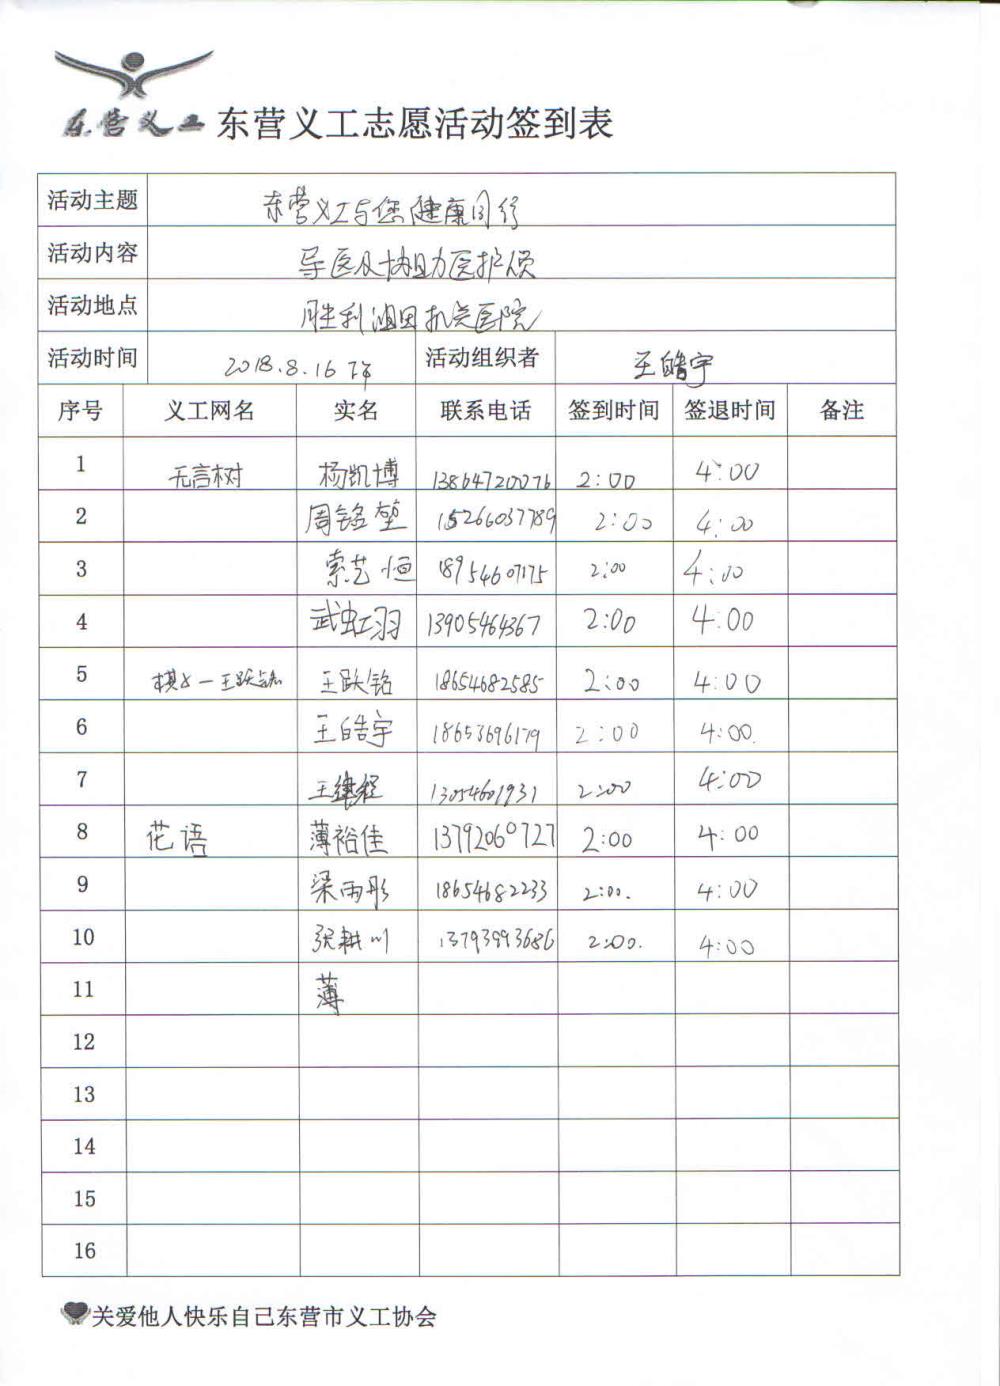 东营义工 东营义工志愿活动签到表
活动主题 东营义工与您健康同行
活动内容 导医及协助医护人员
活动地点 胜利油田机关医院
活动时间 2018.8.16 下午 活动组织者 王皓宇
序号 义工网名 实名 联系电话 签到时间 签退时间 备注
1 无言树 杨凯博 13864720076 2:00 4:00
2 周铭堃 15266037789 2:00 4:00
3 索艺恒 18954607175 2:00 4:00
4 武虹羽 13905464367 2:00 4:00
5 王跃铭 18654682585 2:00 4:00
6 王皓宇 18653696179 2:00 4:00
7 13054601931 2:00 4:00
8 花语 薄裕佳 13792060727 2:00 4:00
9 梁雨彤 18654682233 2:00. 4:00
10 张耕川 13793993686 2:00. 4:00
11 薄
12
13
14
15
16
关爱他人快乐自己东营市义工协会